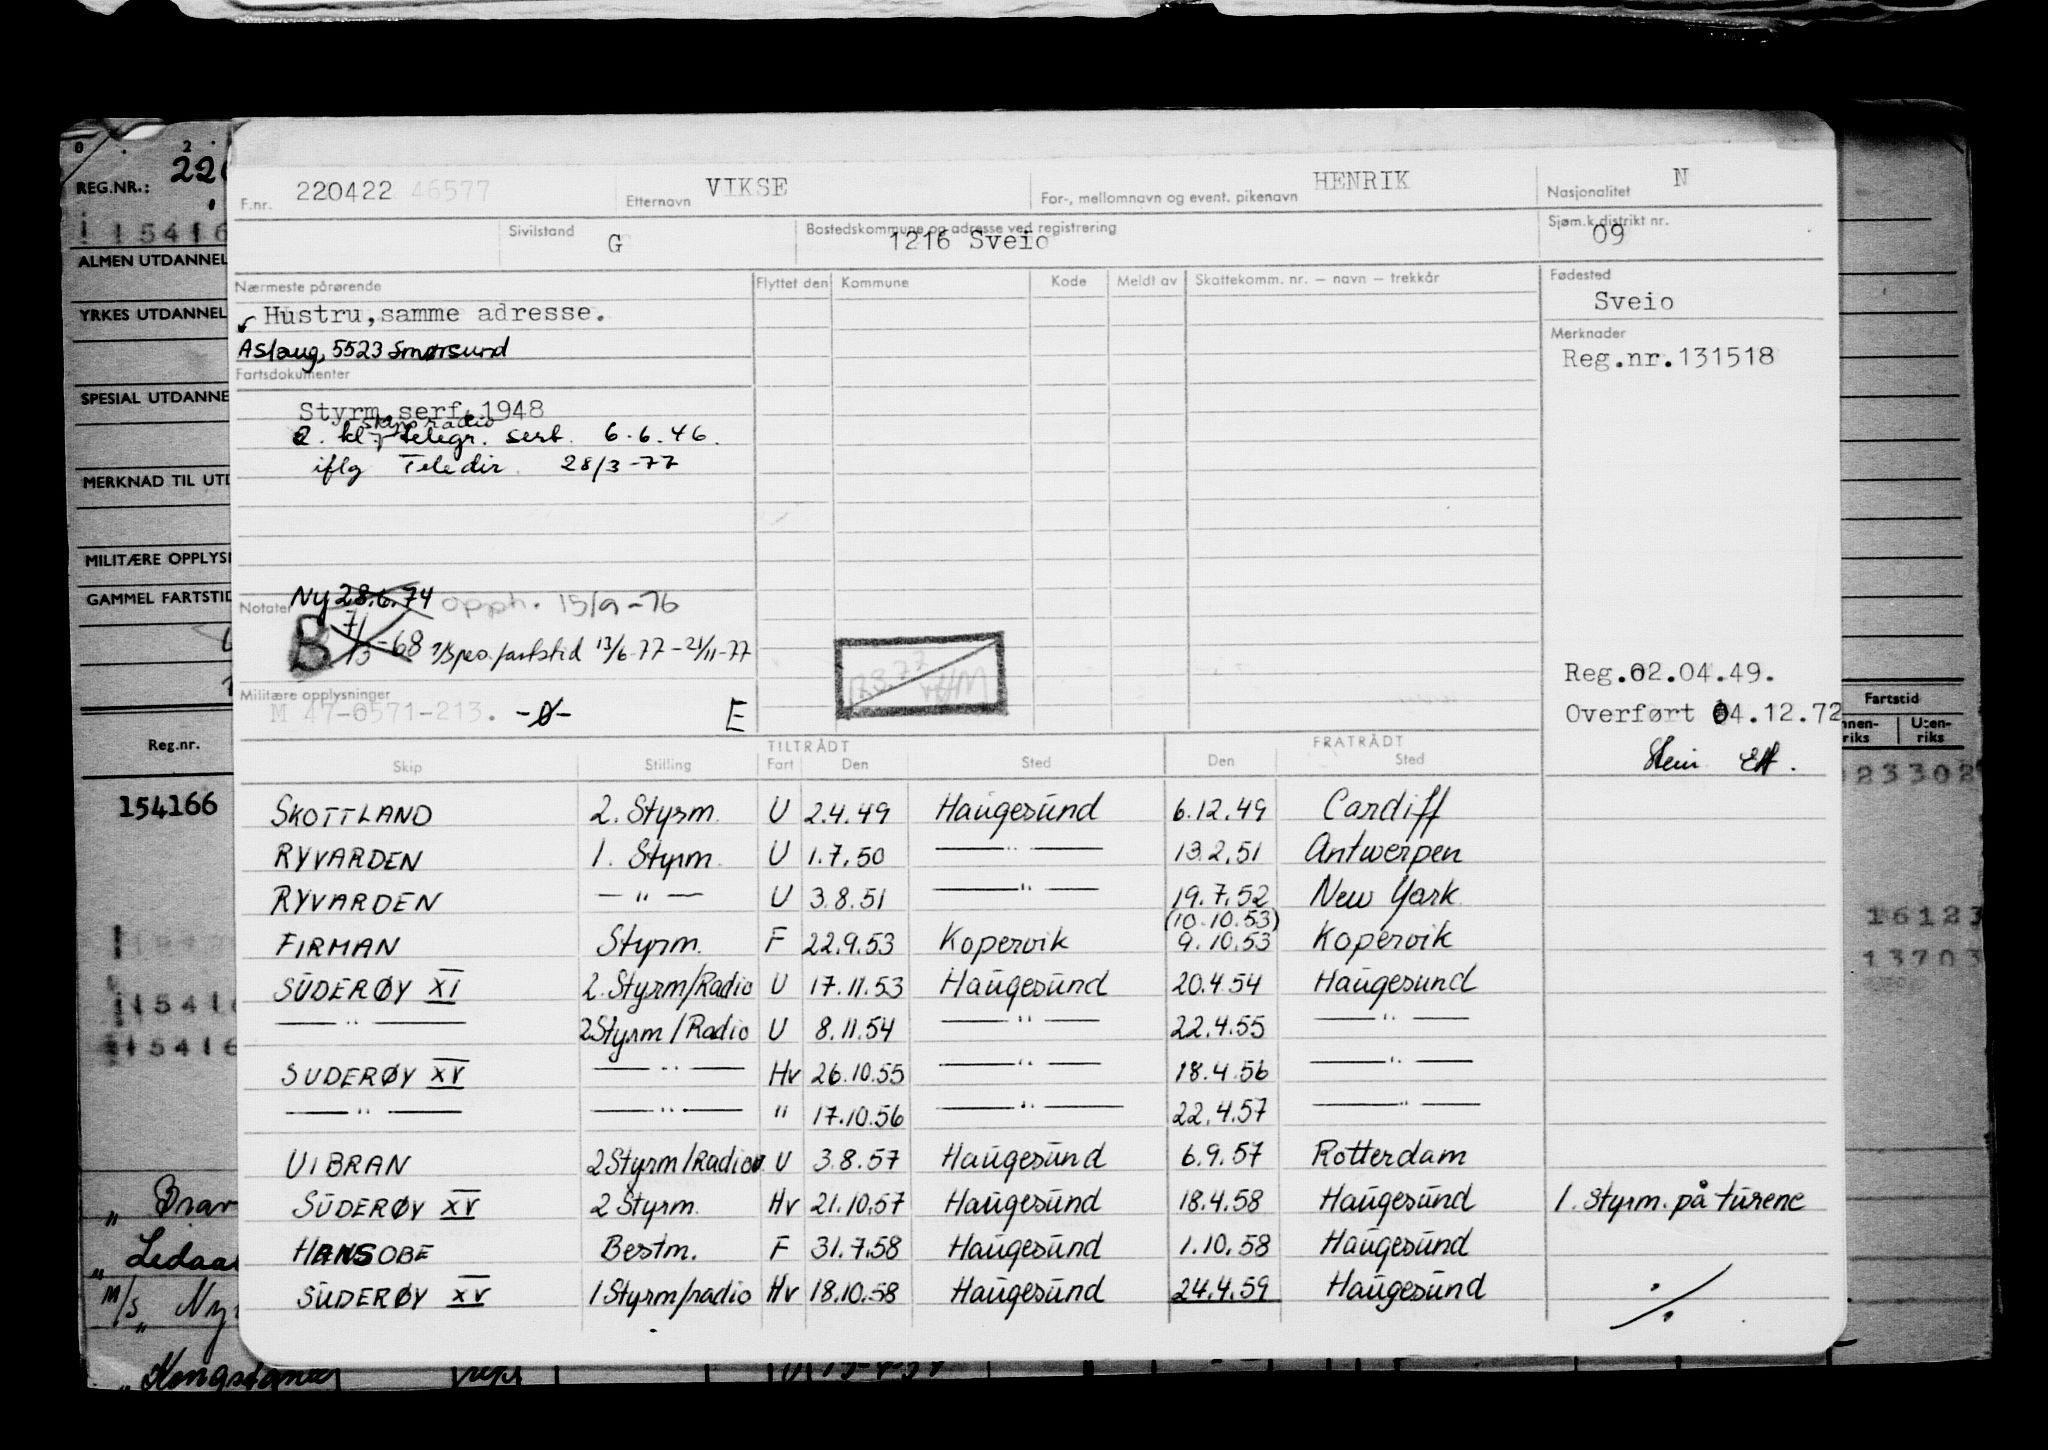 F.nr. 220422 46577 Etternavn VIKSE For-, mellomnavn og event. pikenavn HENRIK Nasjonalitet N
Sivilstand G Bostedskommune og adresse ved registrering 1216 Sveio Sjøm.k.distrikt nr. 09
Nærmeste pårørende Flyttet den Kommune Kode Meldt av Skattekomm. nr. — navn — trekkår Fødested
Hustru, samme adresse. Sveio
Aslaug, 5523 Smørsund Merknader
Fartsdokumenter Reg.nr.131518
Styrm.serf.1948
skipsradio
2. kl. telegr. sert. 6.6.46.
iflg Teledir. 28/3-77
Notater Ny 28.6.74 opph. 15/9-76
B 7/3-68 7/Spes.fartstid 13/6-77-21/11-77
Reg.02.04.49.
Militære opplysninger
M 47-0571-213. -0- E Overført 04.12.72
TILTRÅDT FRATRÅDT
Skip Stilling Fart Den Sted Den Sted
SKOTTLAND 2. Styrm. U 2.4.49 Haugesund 6.12.49 Cardiff
RYVARDEN 1. Styrm. U 1.7.50 —"— 13.2.51 Antwerpen
RYVARDEN —"— U 3.8.51 —"— 19.7.52 New York
(10.10.53)
FIRMAN Styrm. F 22.9.53 Kopervik 9.10.53 Kopervik
SUDERØY XI 2. Styrm/Radio U 17.11.53 Haugesund 20.4.54 Haugesund
—"— 2Styrm/Radio U 8.11.54 —"— 22.4.55 —"—
SUDERØY XV —"— Hv 26.10.55 —"— 18.4.56 —"—
—"— —"— " 17.10.56 —"— 22.4.57 —"—
VIBRAN 2Styrm/Radio U 3.8.57 Haugesund 6.9.57 Rotterdam
SUDERØY XV 2 Styrm. Hv 21.10.57 Haugesund 18.4.58 Haugesund 1. Styrm. på turene
HANSOBE Bestm. F 31.7.58 Haugesund 1.10.58 Haugesund
SUDERØY XV 1Styrm/radio Hv 18.10.58 Haugesund 24.4.59 Haugesund ./.
REG.NR.:
ALMEN UTDANNEL
YRKES UTDANNEL
SPESIAL UTDANNE
MERKNAD TIL UTD
MILITÆRE OPPLYS
GAMMEL FARTSTID
Reg.nr.
154166
Fartstid
nnen-riks Uten-riks
23302
16123
13703